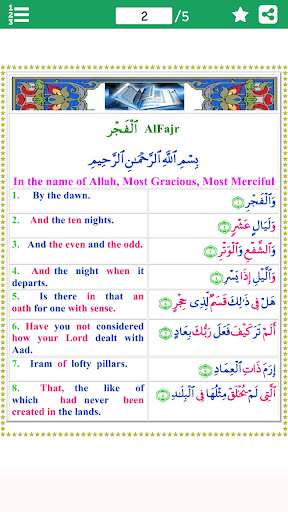 2 /5
ٱلْفَجْرِ AlFajr
بِسْمِ ٱللَّهِ ٱلرَّحْمَٰنِ ٱلرَّحِيمِ
In the name of Allah, Most Gracious, Most Merciful
1. By the dawn.
وَٱلْفَجْرِ ﴿١﴾
2. And the ten nights.
وَلَيَالٍ عَشْرٍ ﴿٢﴾
3. And the even and the odd.
وَٱلشَّفْعِ وَٱلْوَتْرِ ﴿٣﴾
4. And the night when it
departs.
وَٱلَّيْلِ إِذَا يَسْرِ ﴿٤﴾
5. Is there in that an
oath for one with sense.
هَلْ فِي ذَٰلِكَ قَسَمٌ لِّذِى حِجْرٍ ﴿٥﴾
6. Have you not considered
how your Lord dealt with
Aad.
أَلَمْ تَرَ كَيْفَ فَعَلَ رَبُّكَ بِعَادٍ ﴿٦﴾
7. Iram of lofty pillars.
إِرَمَ ذَاتِ ٱلْعِمَادِ ﴿٧﴾
8. That, the like of
which had never been
created in the lands.
ٱلَّتِى لَمْ يُخْلَقْ مِثْلُهَا فِي ٱلْبِلَٰدِ ﴿٨﴾